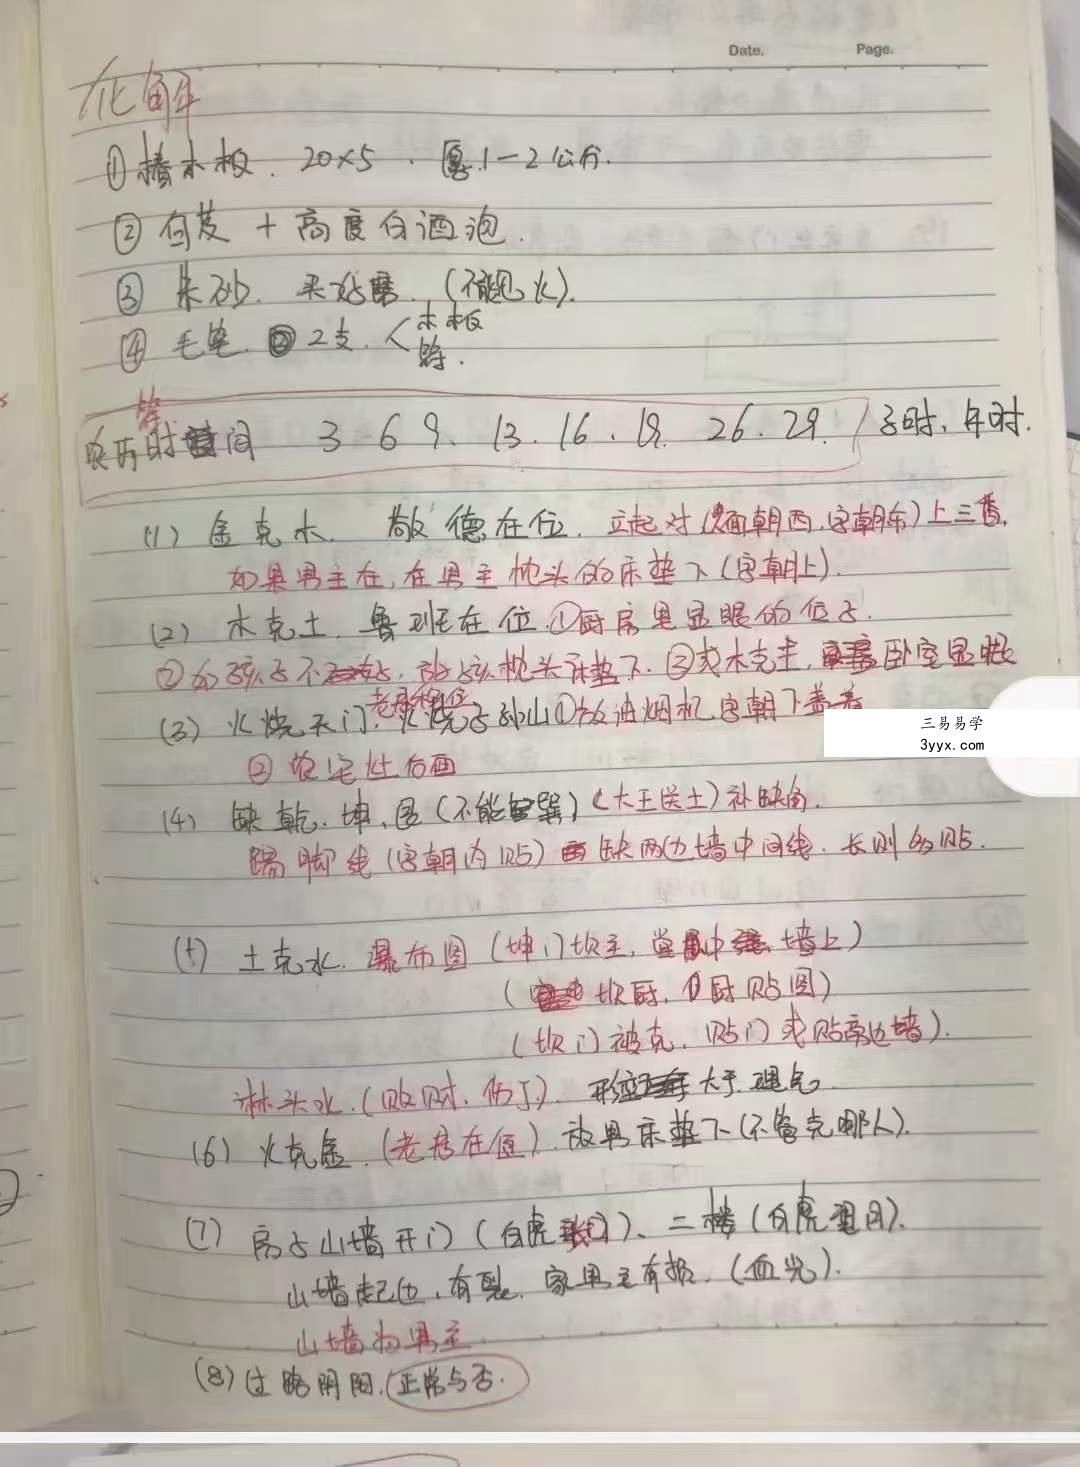 Date. Page.
化解
①椿木板. 20×5. 厚.1-2公分.
②白芨+高度白酒泡.
③朱砂. 买好磨. (不能见火).
④毛笔. 2支. 木板
符.
符
时间 3 6 9. 13. 16. 19. 26. 29. 子时、午时.
(1) 金克木. 敬德在位. 立起对(面朝西.字朝东)上三香.
如果男主在, 在男主枕头的床垫下(字朝上).
(2) 木克土. 鲁班在位.①厨房里显眼的位子.
②如孩子不好, 孩枕头床垫下. ③或木克主, 卧室显眼
老君得位
(3) 火烧天门. 火烧子孙山①放油烟机.字朝下盖着
三易易学
3yyx.com
② 农宅灶后面
(4) 缺乾、坤、艮(不能 巽)(大王送土)补缺角.
踢脚线(字朝内贴) 缺两边墙中间线. 长则多贴.
(5) 土克水. 瀑布图(坤门坎主, 堂屋中 墙上)
(坎厨, 厨贴图)
(坎门被克. 贴门或贴旁边墙).
淋头水.(败财.伤丁). 形 大于理气.
(6) 火克金.(老君在值). 放男床垫下(不管克哪人).
(7) 房子山墙开门(白虎张口)、二楼(白虎 目).
山墙起包.有裂. 家男主有损.(血光).
山墙为男主.
(8) 过路阴阳.正常与否.